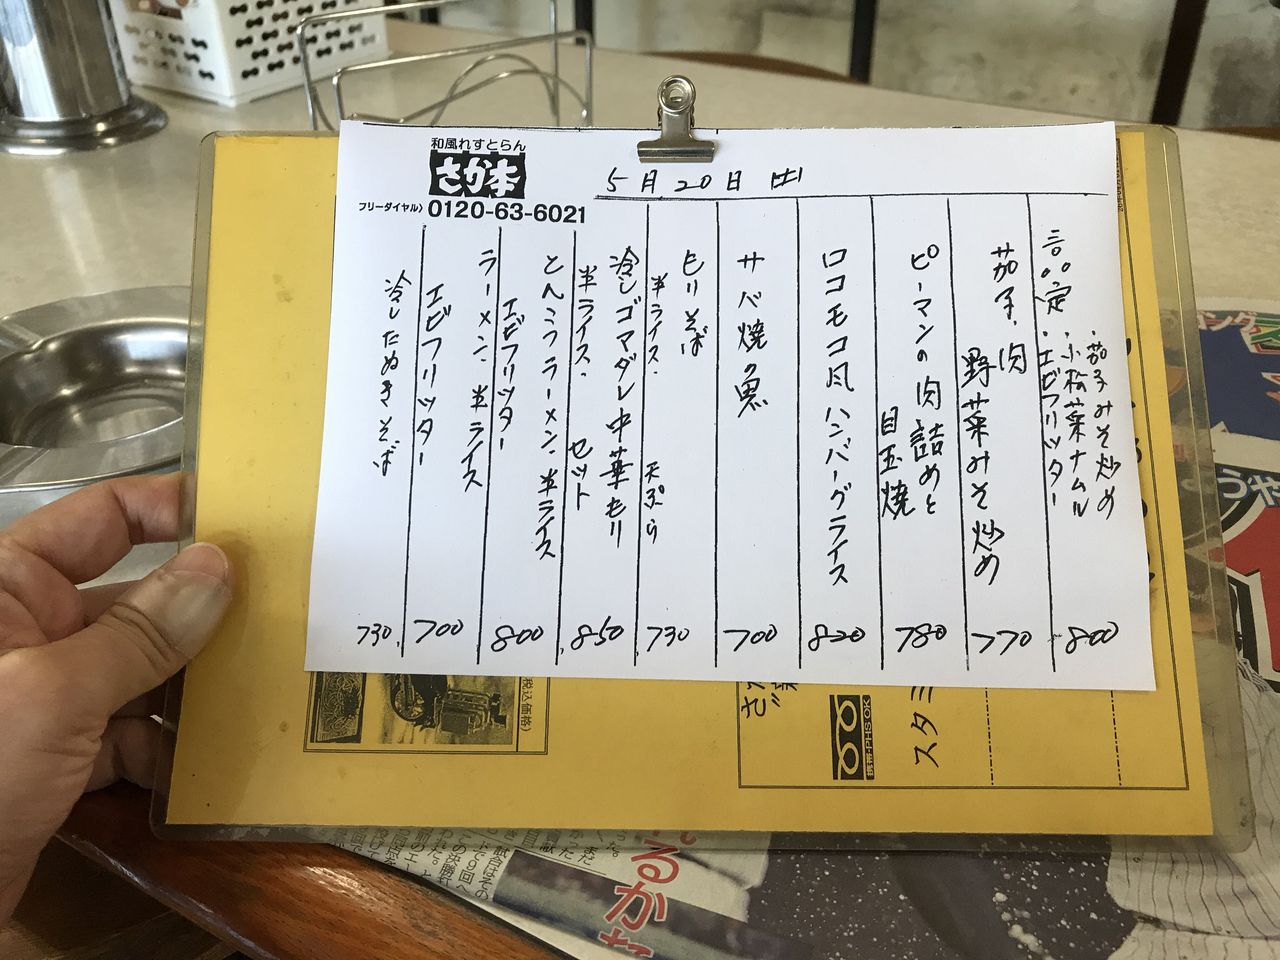 和風れすとらん
さか本
フリーダイヤル〉0120-63-6021
5月20日 土
三品定
・茄子みそ炒め
・小松菜ナムル
・エビフリッター
800
茄子、肉
野菜みそ炒め
770
ピーマンの肉詰めと
目玉焼
780
ロコモコ風ハンバーグライス
820
サバ焼魚
700
もりそば
半ライス・天ぷら
730
冷しゴマダレ中華もり
半ライス・セット
850
とんこつラーメン、半ライス
エビフリッター
800
ラーメン、半ライス
エビフリッター
700
冷したぬきそば
730
税込価格)
携帯・PHS OK
スタミ